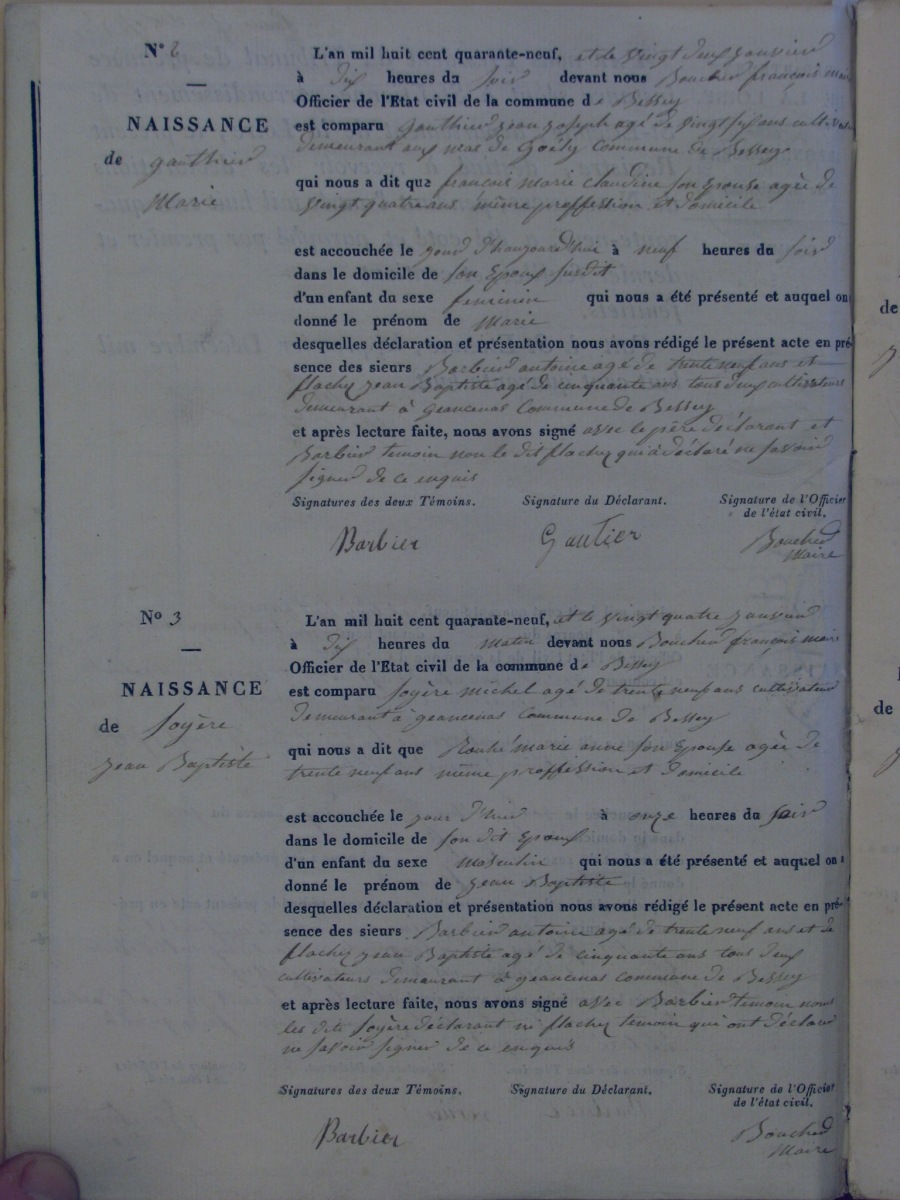 N° 2
NAISSANCE
de gauthier
Marie
L'an mil huit cent quarante-neuf, et le vingt deux janvier
à dix heures du soir devant nous Boucher françois mair
Officier de l'Etat civil de la commune de Bessey
est comparu gauthier jean joseph agé de vingt six ans cultivateur
demeurant aux mas de Goëly commune de Bessey
qui nous a dit que françois marie claudine son epouse agée de
vingt quatre ans même proffession et domicile
est accouchée le jour d'haujourd'hui à neuf heures du soir
dans le domicile de son epoux susdit
d'un enfant du sexe feminin qui nous a été présenté et auquel on
donné le prénom de Marie
desquelles déclaration et présentation nous avons rédigé le présent acte en pré-
sence des sieurs Barbier antoine agé de trente neuf ans et
flachy jean Baptiste agé de cinquante ans tous deux cultivateurs
demeurant à geancenas commune de Bessey
et après lecture faite, nous avons signé avec le père déclarant et
Barbier temoin non le dit flachy qui a déclaré ne savoir
signer de ce enquis
Signatures des deux Témoins. Signature du Déclarant. Signature de l'Officier
de l'état civil.
Barbier Gautier Boucher
Maire
N° 3
NAISSANCE
de soyère
jean Baptiste
L'an mil huit cent quarante-neuf, et le vingt quatre janvier
à dix heures du matin devant nous Boucher françois mair
Officier de l'Etat civil de la commune de Bessey
est comparu soyère michel agé de trente neuf ans cultivateur
demeurant à geancenas commune de Bessey
qui nous a dit que marie anne son epouse agée de
trente neuf ans même proffession et domicile
est accouchée le jour d'hier à onze heures du soir
dans le domicile de son dit epoux
d'un enfant du sexe masculin qui nous a été présenté et auquel on a
donné le prénom de jean Baptiste
desquelles déclaration et présentation nous avons rédigé le présent acte en pré-
sence des sieurs Barbier antoine agé de trente neuf ans et de
flachy jean Baptiste agé de cinquante ans tous deux
cultivateurs demeurant à geancenas commune de Bessey
et après lecture faite, nous avons signé avec Barbier temoin non
les dits soyère déclarant ni flachy temoin qui ont déclaré
ne savoir signer de ce enquis
Signatures des deux Témoins. Signature du Déclarant. Signature de l'Officier
de l'état civil.
Barbier Boucher
Maire
de
de